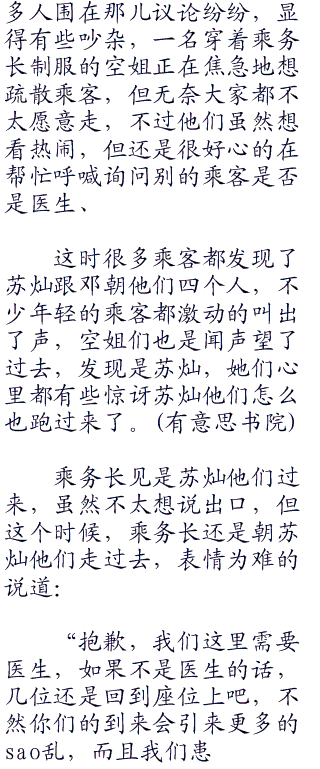 多人围在那儿议论纷纷，显
得有些吵杂，一名穿着乘务
长制服的空姐正在焦急地想
疏散乘客，但无奈大家都不
太愿意走，不过他们虽然想
看热闹，但还是很好心的在
帮忙呼喊询问别的乘客是否
是医生、
这时很多乘客都发现了
苏灿跟邓朝他们四个人，不
少年轻的乘客都激动的叫出
了声，空姐们也是闻声望了
过去，发现是苏灿，她们心
里都有些惊讶苏灿他们怎么
也跑过来了。(有意思书院)
乘务长见是苏灿他们过
来，虽然不太想说出口，但
这个时候，乘务长还是朝苏
灿他们走过去，表情为难的
说道：
“抱歉，我们这里需要
医生，如果不是医生的话，
几位还是回到座位上吧，不
然你们的到来会引来更多的
sao乱，而且我们患